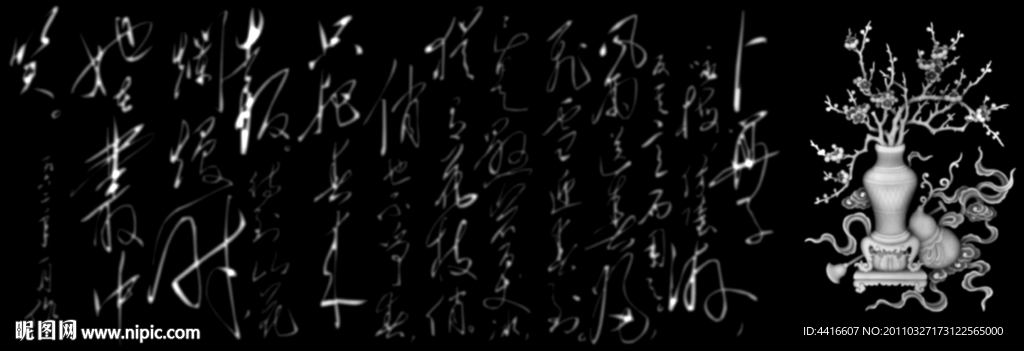 卜算子
咏梅
反其意而用之。
风雨送春归，
飞雪迎春到。
已是悬崖百丈冰，
犹有花枝俏。
俏也不争春，
只把春来
报。待到山花
烂漫时
她在丛中
笑。
一九六二年一月
昵图网 www.nipic.com
ID:4416607 NO:20110327173122565000